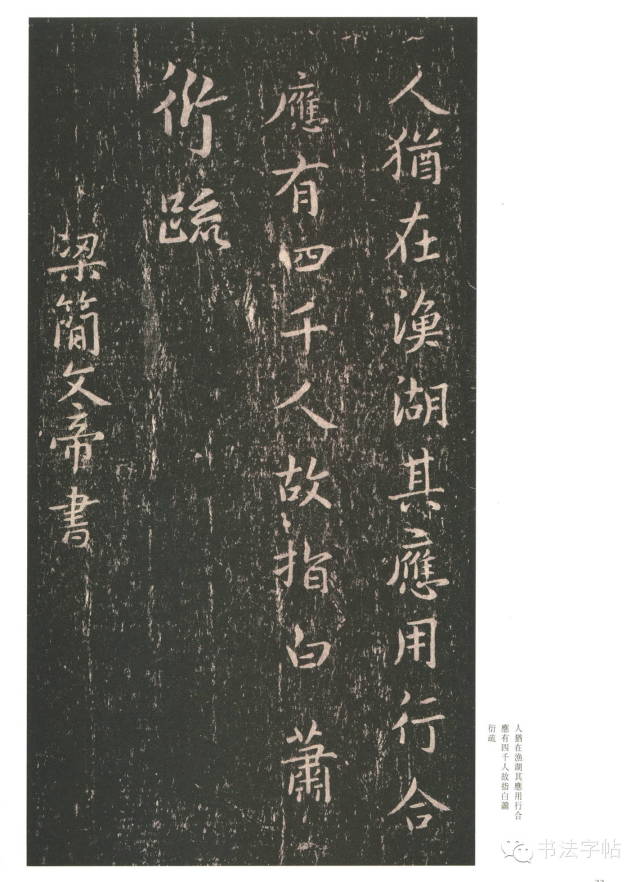 人猶在漁湖其應用行合
應有四千人故指白 蕭
衍疏
梁簡文帝書
人猶在漁湖其應用行合
應有四千人故指白蕭
衍疏
书法字帖